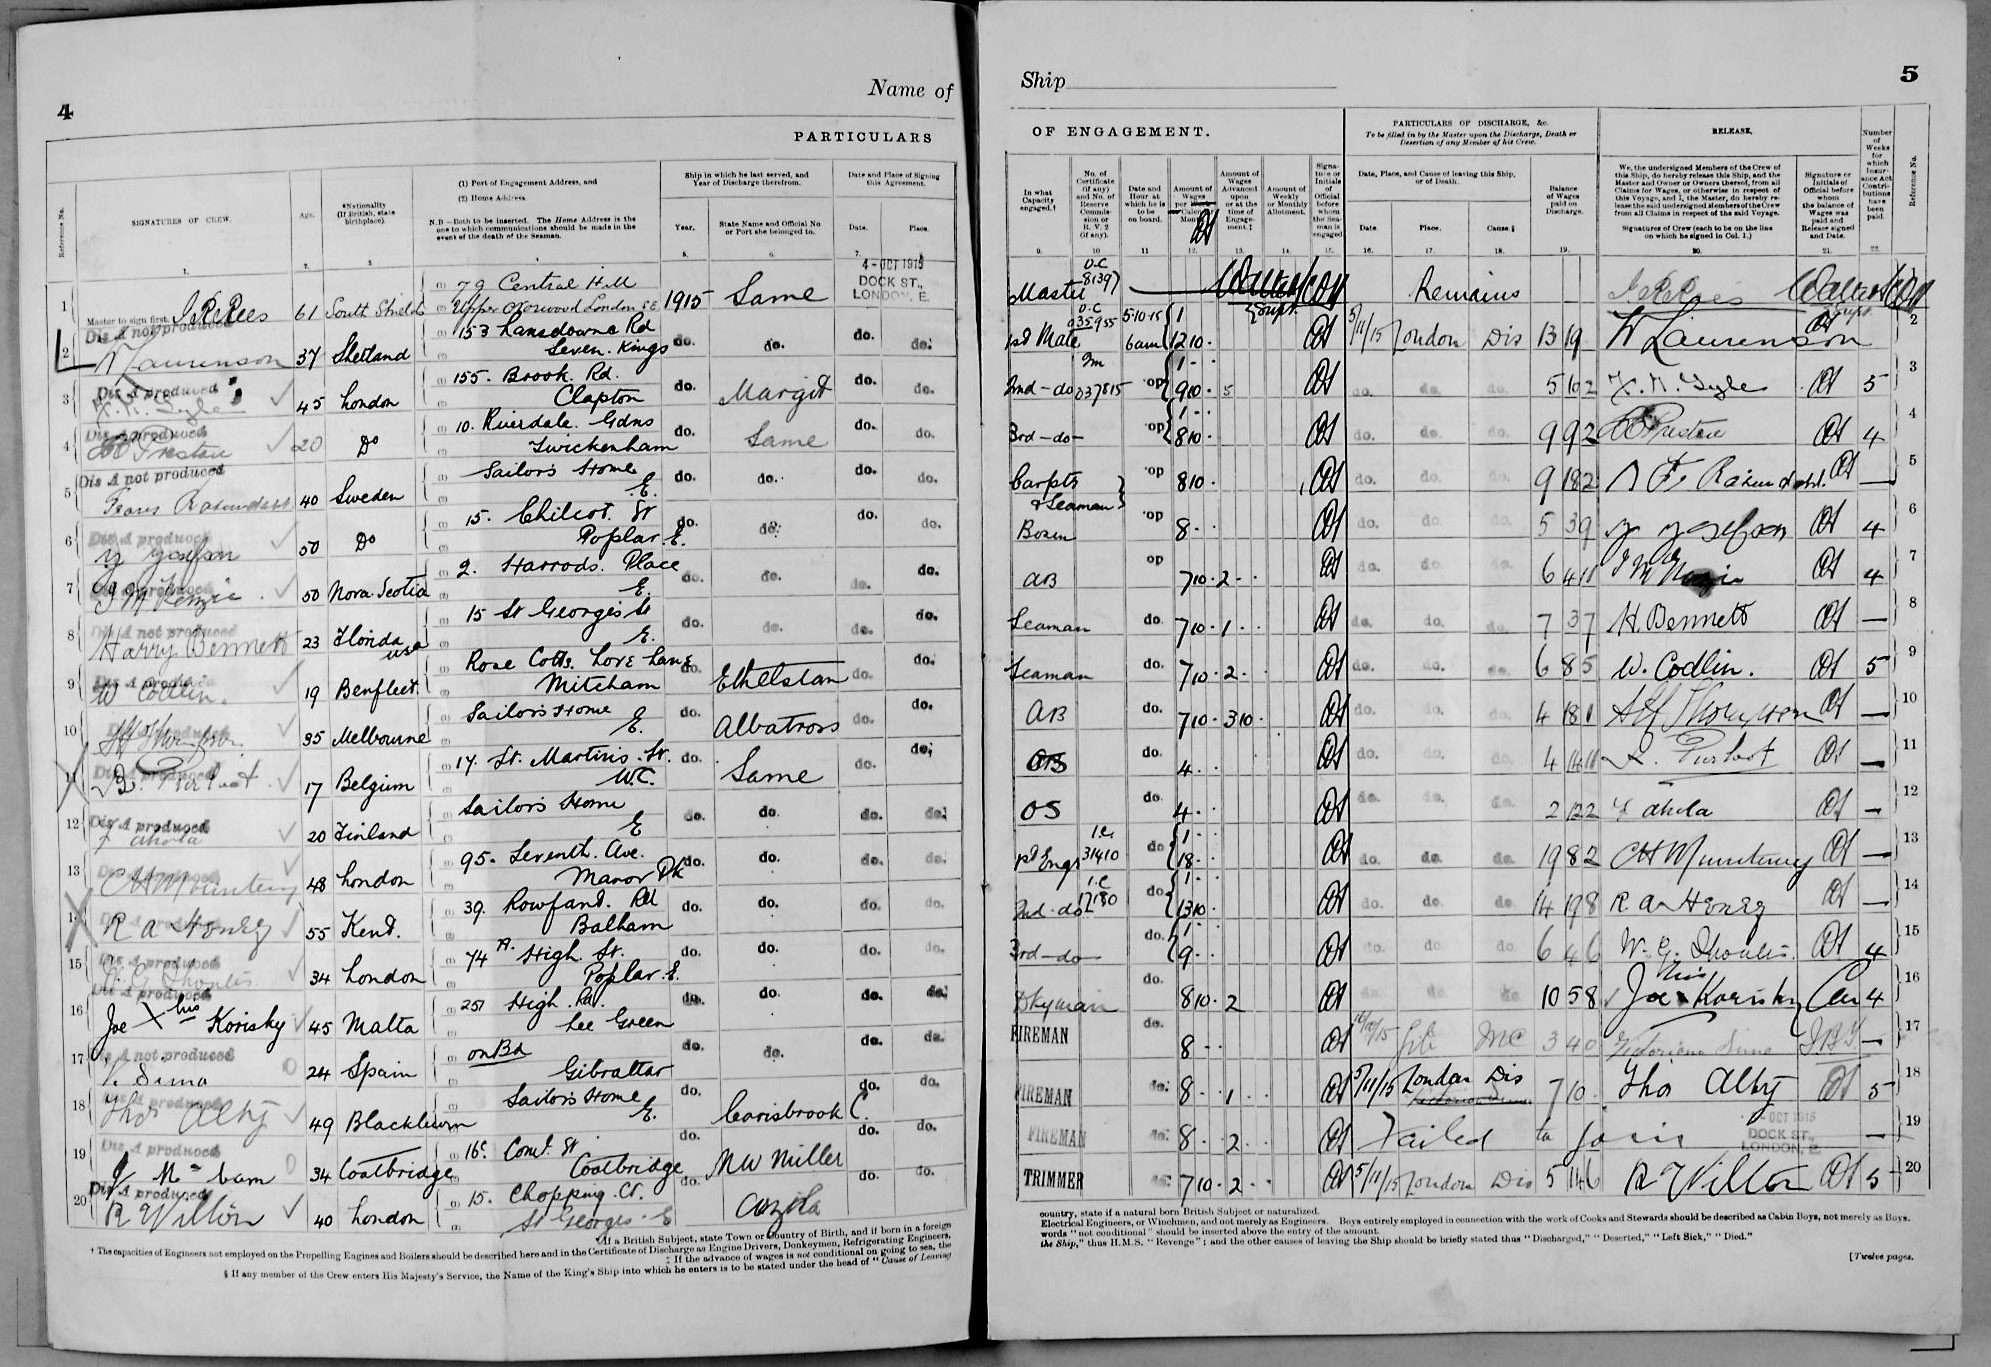 4
Name of
PARTICULARS
Reference No.
SIGNATURES OF CREW.
Age.
*Nationality
(If British, state
birthplace).
(1) Port of Engagement Address, and
(2) Home Address.
N.B.—Both to be inserted. The Home Address is the
one to which communications should be made in the
event of the death of the Seaman.
Ship in which he last served, and
Year of Discharge therefrom.
Year.
State Name and Official No.
or Port she belonged to.
Date and Place of Signing
this Agreement.
Date.
Place.
4 - OCT 1915
DOCK ST.,
LONDON, E.
1 Master to sign first. 61 South Shields (1) 79 Central Hill
(2) Upper Norwood London SE 1915 Same
Dis A not produced
2 W Laurenson 37 Shetland (1) 153 Lansdowne Rd
Seven Kings do. do. do. do.
Dis A produced
3 45 London (1) 155. Brook. Rd.
Clapton do. Margit do. do.
Dis A produced
4 Preston 20 Do (1) 10. Riverdale. Gdns
Twickenham do. Same do. do.
Dis A not produced
5 Frans 40 Sweden Sailor's Home
E. do. do. do. do.
Dis A produced
6 50 Do 15. Chilcot. St
Poplar. E. do. do. do. do.
7 50 Nova Scotia 2. Harrods. Place
E. do. do. do. do.
Dis A not produced
8 Harry Bennett 23 Florida
USA 15 St George's St
E. do. do. do. do.
Dis A produced
9 W Codlin. 19 Benfleet. Rose Cotts. Love Lane
Mitcham do. Ethelstan do. do.
Dis A produced
10 35 Melbourne Sailor's Home
E. do. Albatross do. do.
Dis A produced
11 17 Belgium 17. St. Martin's. St.
W.C. do. Same do. do.
Dis A produced
12 F Ahola 20 Finland Sailor's Home
E do. do. do. do.
13 48 London 95. Seventh. Ave.
Manor Pk do. do. do. do.
14 R A Honey 55 Kent. 39. Rowfant. Rd
Balham do. do. do. do.
Dis A produced
15 34 London 74A. High St.
Poplar. E. do. do. do. do.
Dis A produced
16 Joe X his Korisky 45 Malta 257 High. Rd.
Lee Green do. do. do. do.
Dis A not produced
17 24 Spain on Bd
Gibraltar do. do. do. do.
Dis A produced
18 Thos Alty 49 Blackburn Sailor's Home
E. Carisbrook C. do. do.
Dis A produced
19 34 Coatbridge St
Coatbridge do. NW Miller do. do.
Dis A produced
20 R Wilton 40 London 15. Chopping. Ct.
St Georges. E do. do. do.
*If a British Subject, state Town or Country of Birth, and if born in a foreign
† The capacities of Engineers not employed on the Propelling Engines and Boilers should be described here and in the Certificate of Discharge as Engine Drivers, Donkeymen, Refrigerating Engineers,
‡ If the advance of wages is not conditional on going to sea, the
§ If any member of the Crew enters His Majesty's Service, the Name of the King's Ship into which he enters is to be stated under the head of "Cause of Leaving
Ship
5
OF ENGAGEMENT.
PARTICULARS OF DISCHARGE, &c.
To be filled in by the Master upon the Discharge, Death or
Desertion of any Member of his Crew.
RELEASE,
Number
of
Weeks
for
which
Insur-
ance Act
Contri-
butions
have
been
paid.
Reference No.
In what
Capacity
engaged.†
No. of
Certificate
(if any)
and No. of
Reserve
Commis-
sion or
R. V. 2
(if any).
Date and
Hour at
which he is
to be
on board.
Amount of
Wages
per
Calendar
Month.
Amount of
Wages
Advanced
upon
or at the
time of
Engage-
ment.‡
Amount of
Weekly
or Monthly
Allotment.
Signa-
ture or
Initials
of
Official
before
whom
the Sea-
man is
engaged
Date, Place, and Cause of leaving this Ship,
or of Death.
Date.
Place.
Cause.§
Balance
of Wages
paid on
Discharge.
We, the undersigned Members of the Crew of
this Ship, do hereby release this Ship, and the
Master and Owner or Owners thereof, from all
Claims for Wages, or otherwise in respect of
this Voyage, and I, the Master, do hereby re-
lease the said undersigned Members of the Crew
from all Claims in respect of the said Voyage.
Signatures of Crew (each to be on the line
on which he signed in Col. 1.)
Signature or
Initials of
Official before
whom
the balance of
Wages was
paid and
Release signed
and Date.
Master Remains
1st Mate 035955 5.10.15 6am 1 12 10 5/11/15 London Dis 13 19 W Laurenson 2
2nd - do 037815 1 9 10 5 do. do. do. 5 10 2 5 3
3rd - do - 1 8 10 do. do. do. 9 9 2 Preston 4 4
Carptr
& Seaman 8 10 do. do. do. 9 18 2 — 5
Bosun 8 do. do. do. 5 3 9 4 6
AB 7 10 2 do. do. do. 6 4 11 4 7
Seaman do. 7 10 1 do. do. do. 7 3 7 H. Bennett — 8
Seaman do. 7 10 2 do. do. do. 6 8 5 W. Codlin. 5 9
AB do. 7 10 3 10 do. do. do. 4 18 1 — 10
do. 4 do. do. do. 4 14 11 — 11
OS do. 4 do. do. do. 2 12 2 F Ahola — 12
1st Engr 31410 do 1 18 do. do. do. 19 8 2 — 13
2nd - do 12180 do. 1 13 10 do. do. do. 14 19 8 R A Honey — 14
3rd - do - do. 1 9 do. do. do. 6 4 6 4 15
Dkyman do. 8 10 2 do. do. do. 10 5 8 Joe his X Korisky 4 16
FIREMAN do. 8 3 4 0 — 17
FIREMAN do. 8 1 5/11/15 London Dis 7 10 Thos Alty 5 18
FIREMAN do. 8 2 Failed to join — 19
OCT 1915
DOCK ST.,
LONDON, E.
TRIMMER do. 7 10 2 5/11/15 London Dis 5 14 6 R Wilton 5 20
country, state if a natural born British Subject or naturalized.
Electrical Engineers, or Winchmen, and not merely as Engineers. Boys entirely employed in connection with the work of Cooks and Stewards should be described as Cabin Boys, not merely as Boys.
words "not conditional" should be inserted above the entry of the amount.
the Ship," thus H.M.S. "Revenge"; and the other causes of leaving the Ship should be briefly stated thus "Discharged," "Deserted," "Left Sick," "Died."
[Twelve pages.